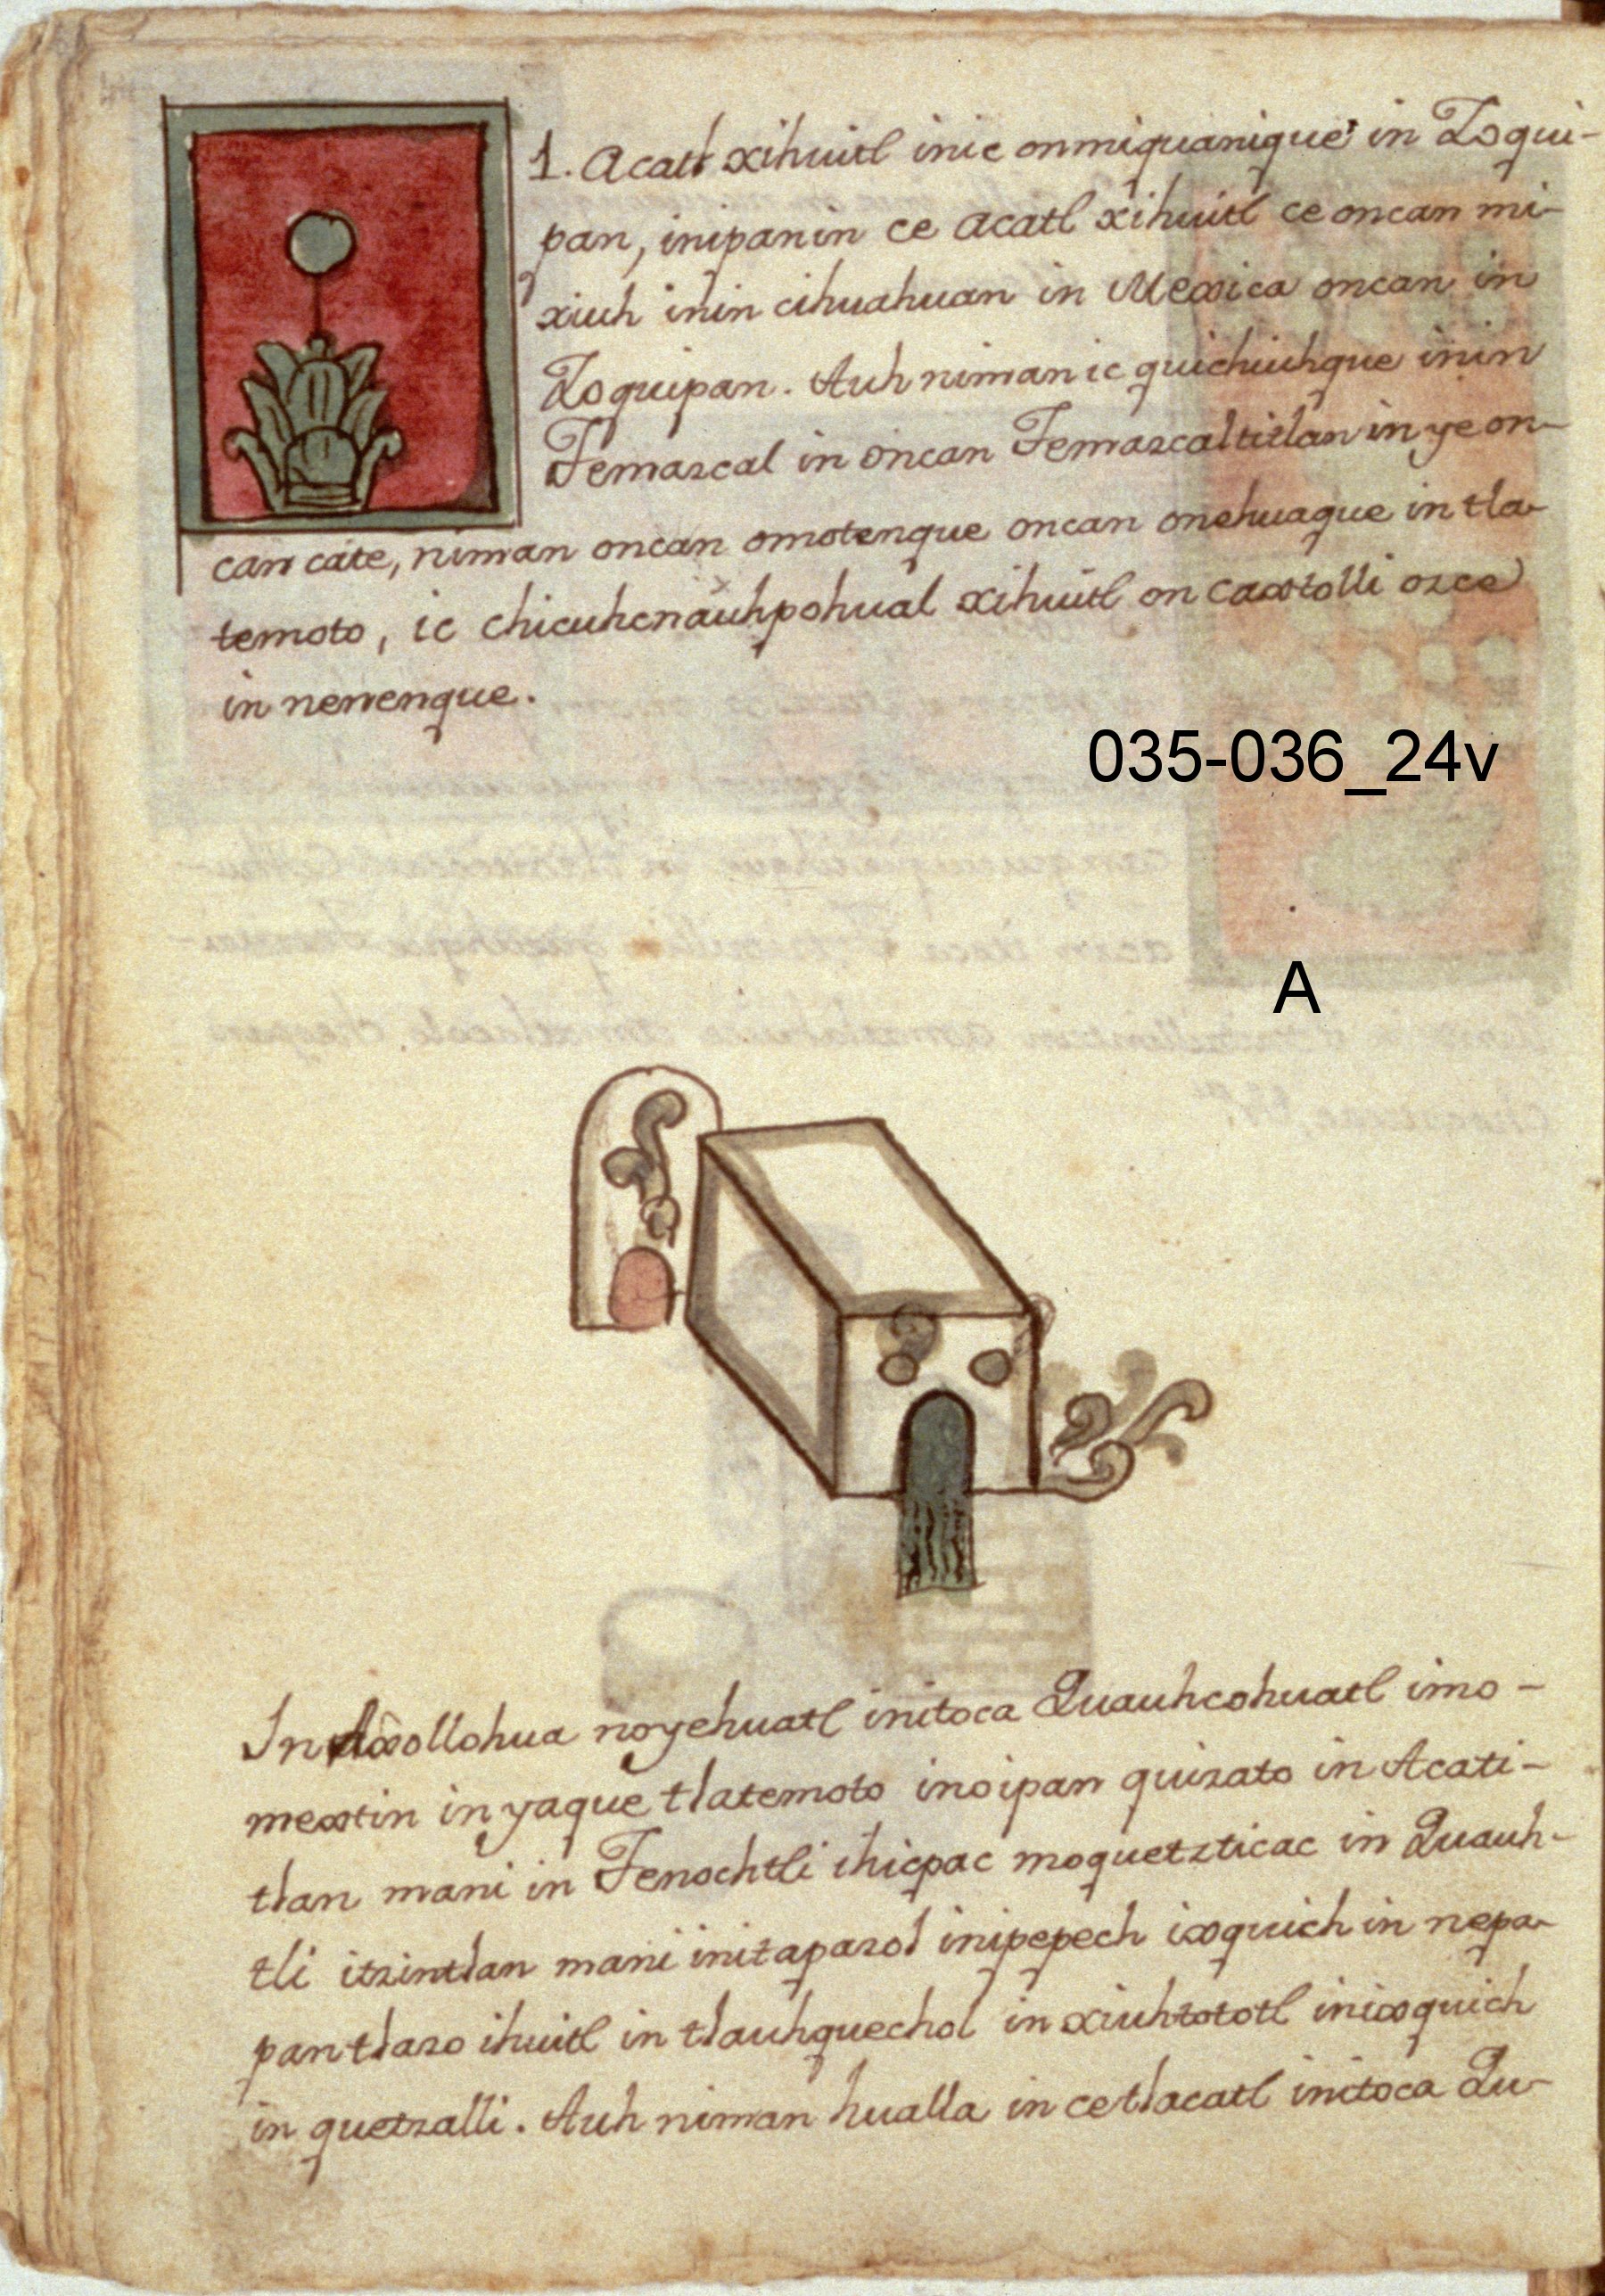 1. Acatl xihuitl inic onmiquanique in Zoqui-
pan, inipanin ce acatl xihuitl ce oncan mi-
xiuh inin cihuahuan in Mexica oncan in
Zoquipan. Auh niman ic quichiuhque inin
Temazcal in oncan Temazcaltitlan in ye on-
can cate, niman oncan omotenque oncan onehuaque in tla-
temoto, ic chicuhcnauhpohual xihuitl on caxtolli oze
in nenenque.
035-036_24v
A
In Axollohua noyehuatl initoca Quauhcohuatl imo-
mextin in yaque tlatemoto inoipan quizato in Acati-
tlan mani in Tenochtli ihicpac moquetzticac in Quauh-
tli itzintlan mani initapazol inipepech ixquich in nepa-
pan tlazo ihuitl in tlauhquechol in xiuhtototl inixquich
in quetzalli. Auh niman hualla in cetlacatl initoca Qu-